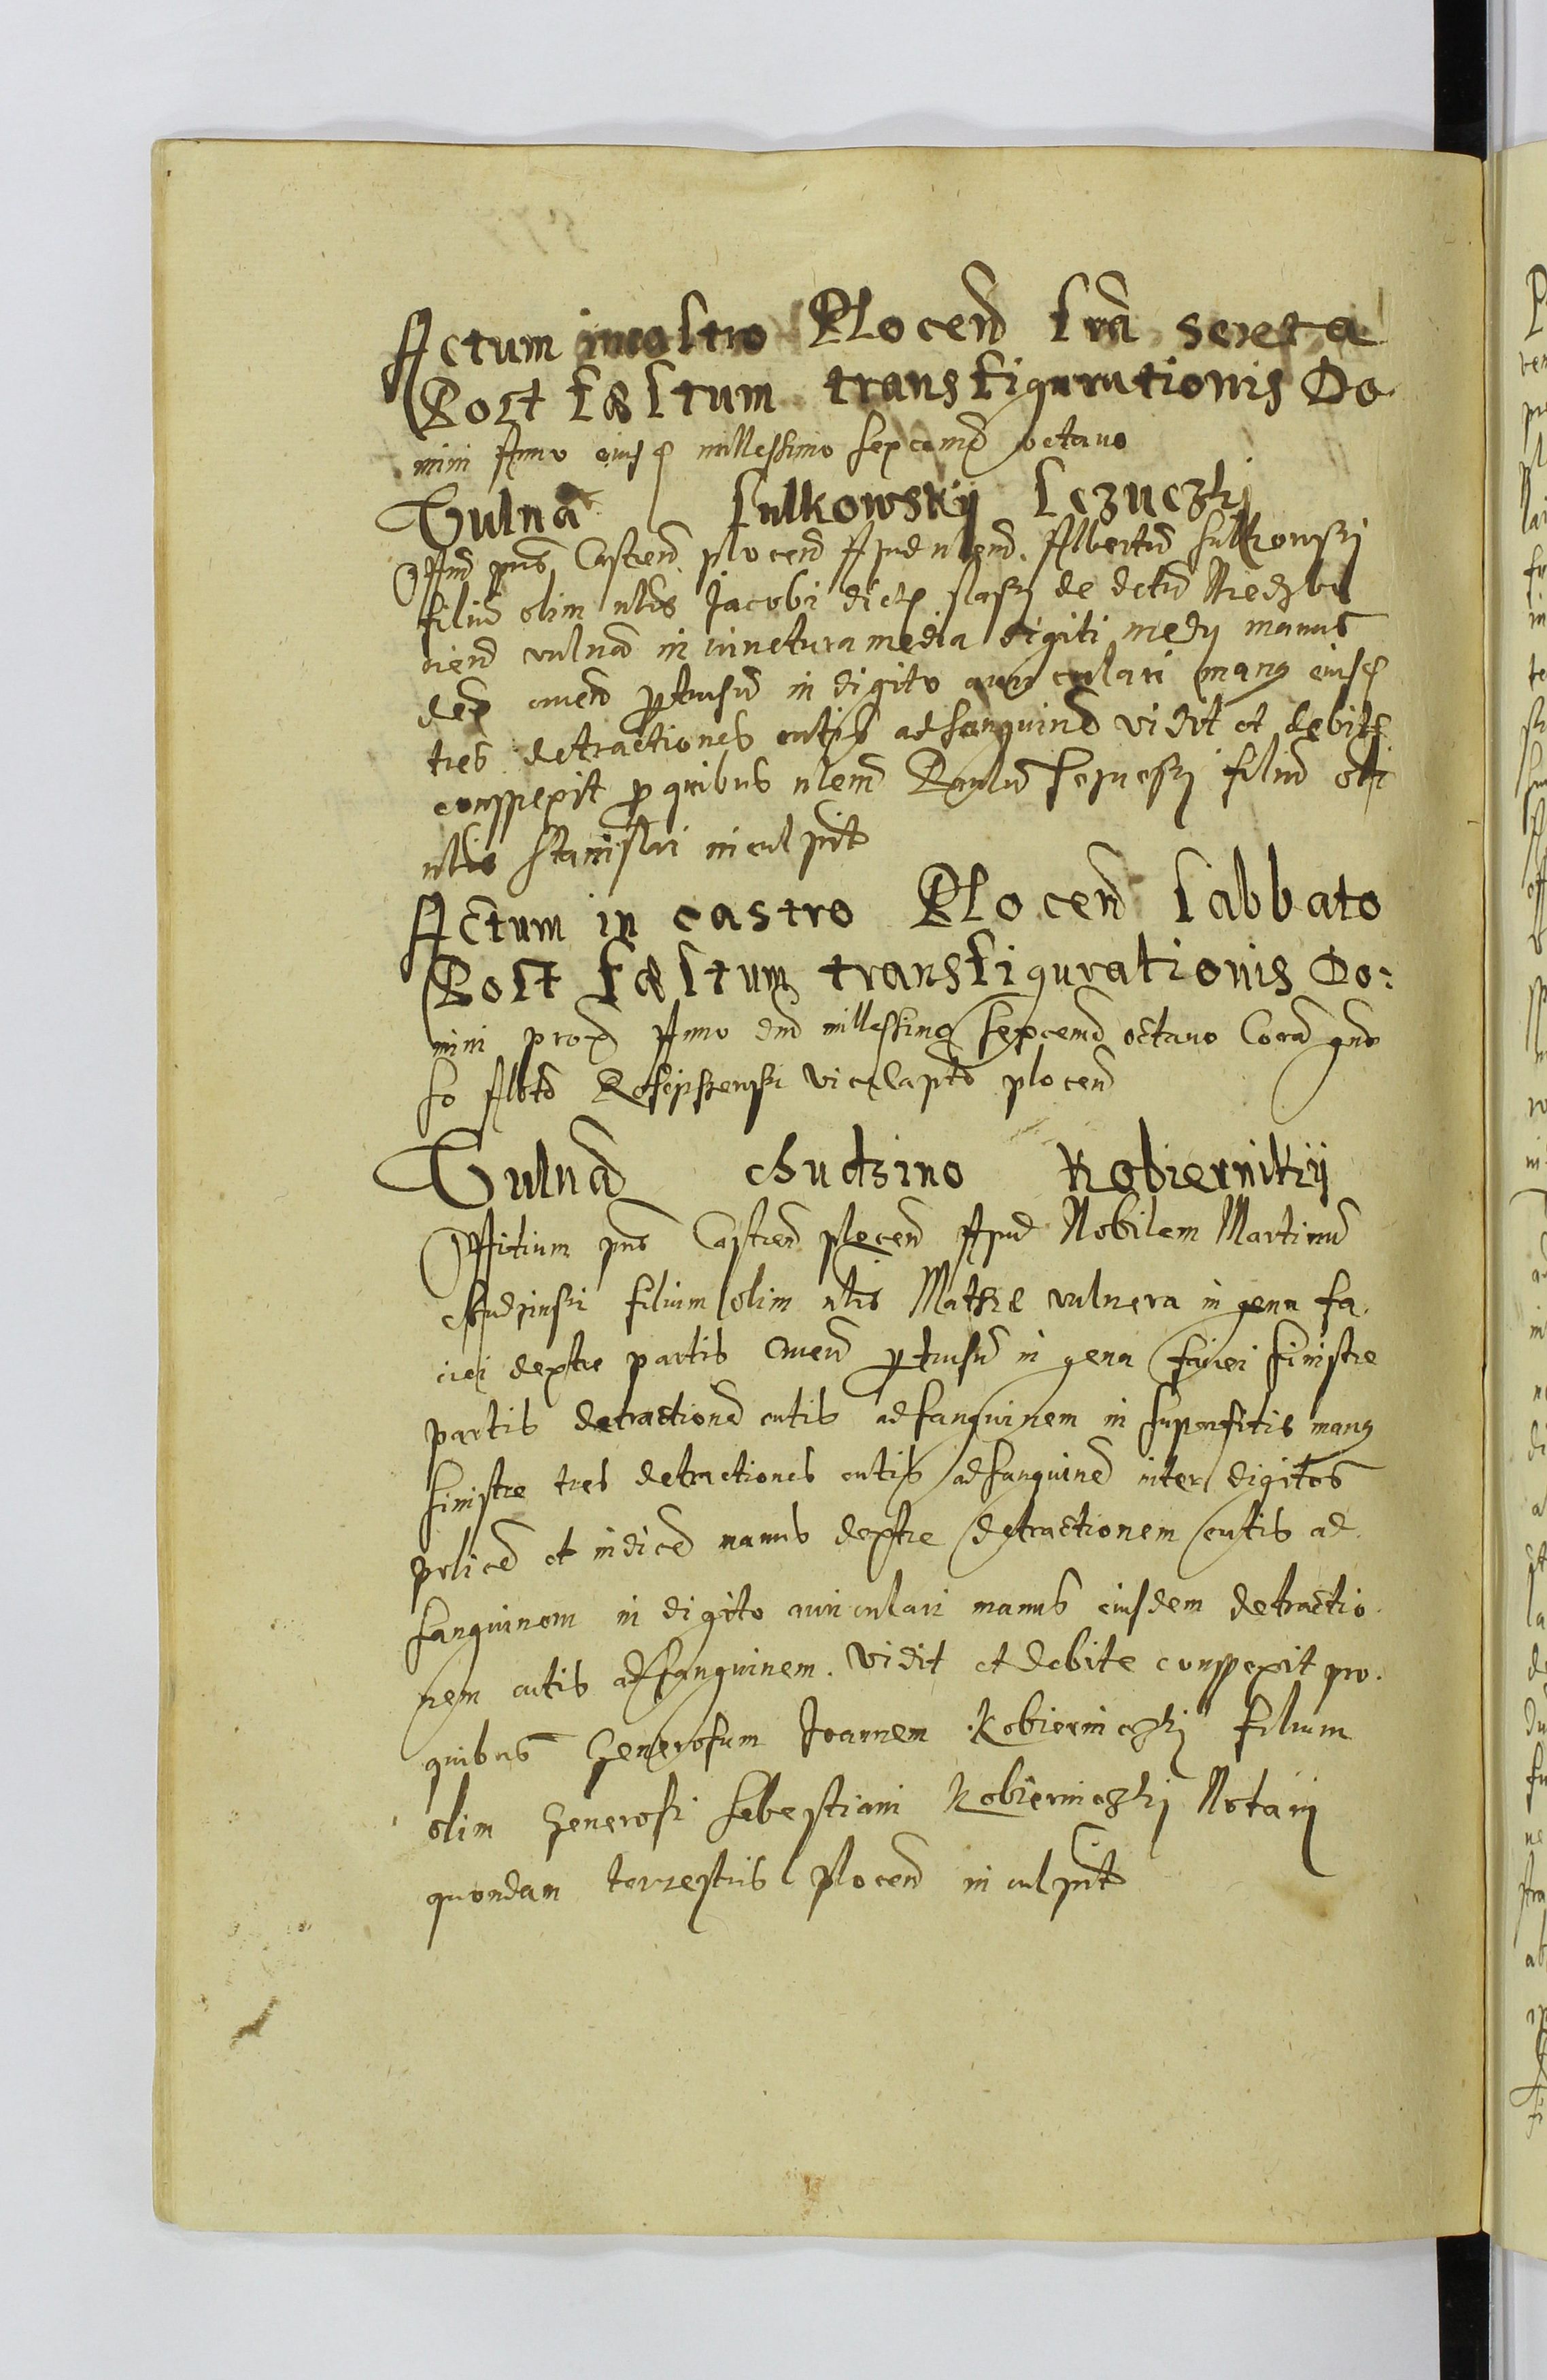 Actum in castro Plocen fria sexta
Post fæstum transfigurationis Do
mini Anno eiusd millessimo sexcenmo octauo
Vulna Sulkowskij Sczuczkj
Offind pns Castren plocen Apud nlem Albertum Sulkowskj
filiu olim nlis Jacobi
vulna in iunctura media digiti medij manus
dex cruen pertusu in digito auriculari manus eiusd
tres detractiones cutis ad sanguine vidit et debite
conspexit p quibus nlem Paulu filiu oli
nlis Stanislai inculpat
Actum in castro Plocen Sabbato
Post fæstum transfigurationis Do:
mini prox Anno dnd millessimo sexcenmo octauo Cora gnro
so Albto vicecapto plocen
Vulna chudzino Kobiernikij
Offitium pns Castren plocen Apud Nobilem Martinu
chudzinski filium olim nlis Mathie vulnera in gena fa
ciei dextre partis cruen pertusu in gena faciei sinistre
partis detractione cutis ad sanguinem in superfitie manus
sinistre tres detractiones cutis ad sanguine inter digitos
police et indice manus dextre detractionem cutis ad
sanguinem in digito auriculari manus eiusdem detractio
nem cutis ad sanguinem. vidit et debite conspexit pro
quibus Generosum Joannem Kobierniczkj filium
olim Generosi Sebestiani Kobierniczkj Notarij
quondam terrestris Plocen inculpat